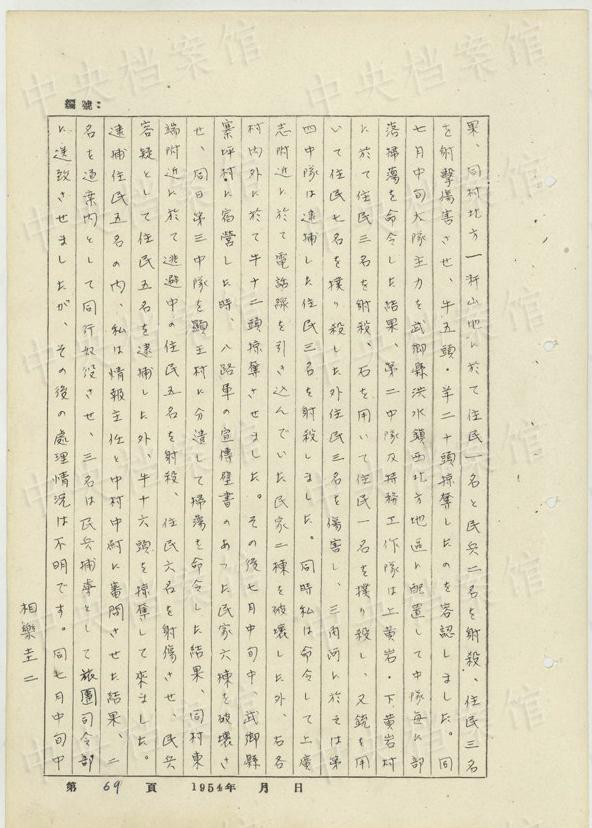 編號：
果、同村北方一粁山地に於て住民一名と民兵二名を射殺、住民三名
を射撃傷害させ、牛五頭・羊二十頭掠奪したのを容認しました。同
七月中旬大隊主力を武郷縣洪水鎮西北方地區に配置して中隊毎に部
落掃蕩を命令した結果、第二中隊及特務工作隊は上黄岩・下黄岩村
に於て住民三名を射殺、石を用いて住民一名を撲り殺し、又銃を用
いて住民七名を撲り殺した外住民三名を傷害し、三肉河に於ては第
四中隊は逮捕した住民三名を射殺しました。同時私は命令して上廣
志附近に於て電話線を引き込んでいた民家二棟を破壊した外、右各
村内外に於て牛十二頭掠奪させました。その後七月中旬中、武郷縣
寨坪村に宿営した時、八路軍の宣傳壁書のあった民家六棟を破壊さ
せ、同日第三中隊を顯王村に分遣して掃蕩を命令した結果、同村東
端附近に於て逃避中の住民五名を射殺、住民六名を射傷させ、民兵
容疑として住民五名を逮捕した外、牛十六頭を掠奪して來ました。
逮捕住民五名の内、私は情報主任と中村中尉に審問させた結果、二
名を道案内として同行奴役させ、三名は民兵捕虜として旅團司令部
に送致させましたが、その後の處理情況は不明です。同七月中旬中
相樂圭二
第 69 頁 1954年 月 日
中央档案馆